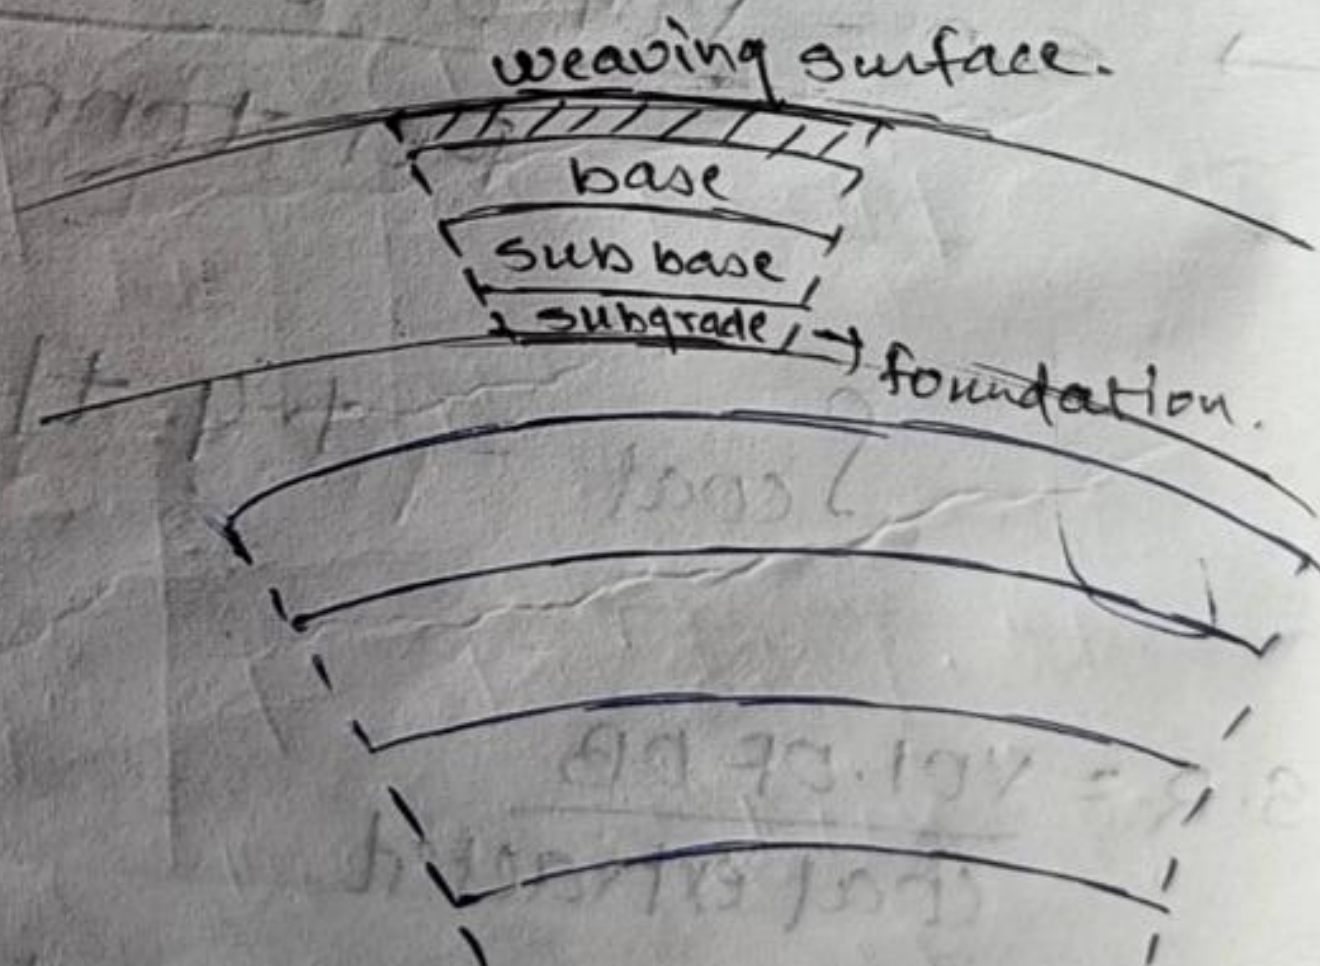 weaving surface.
base
sub base
subgrade
foundation.